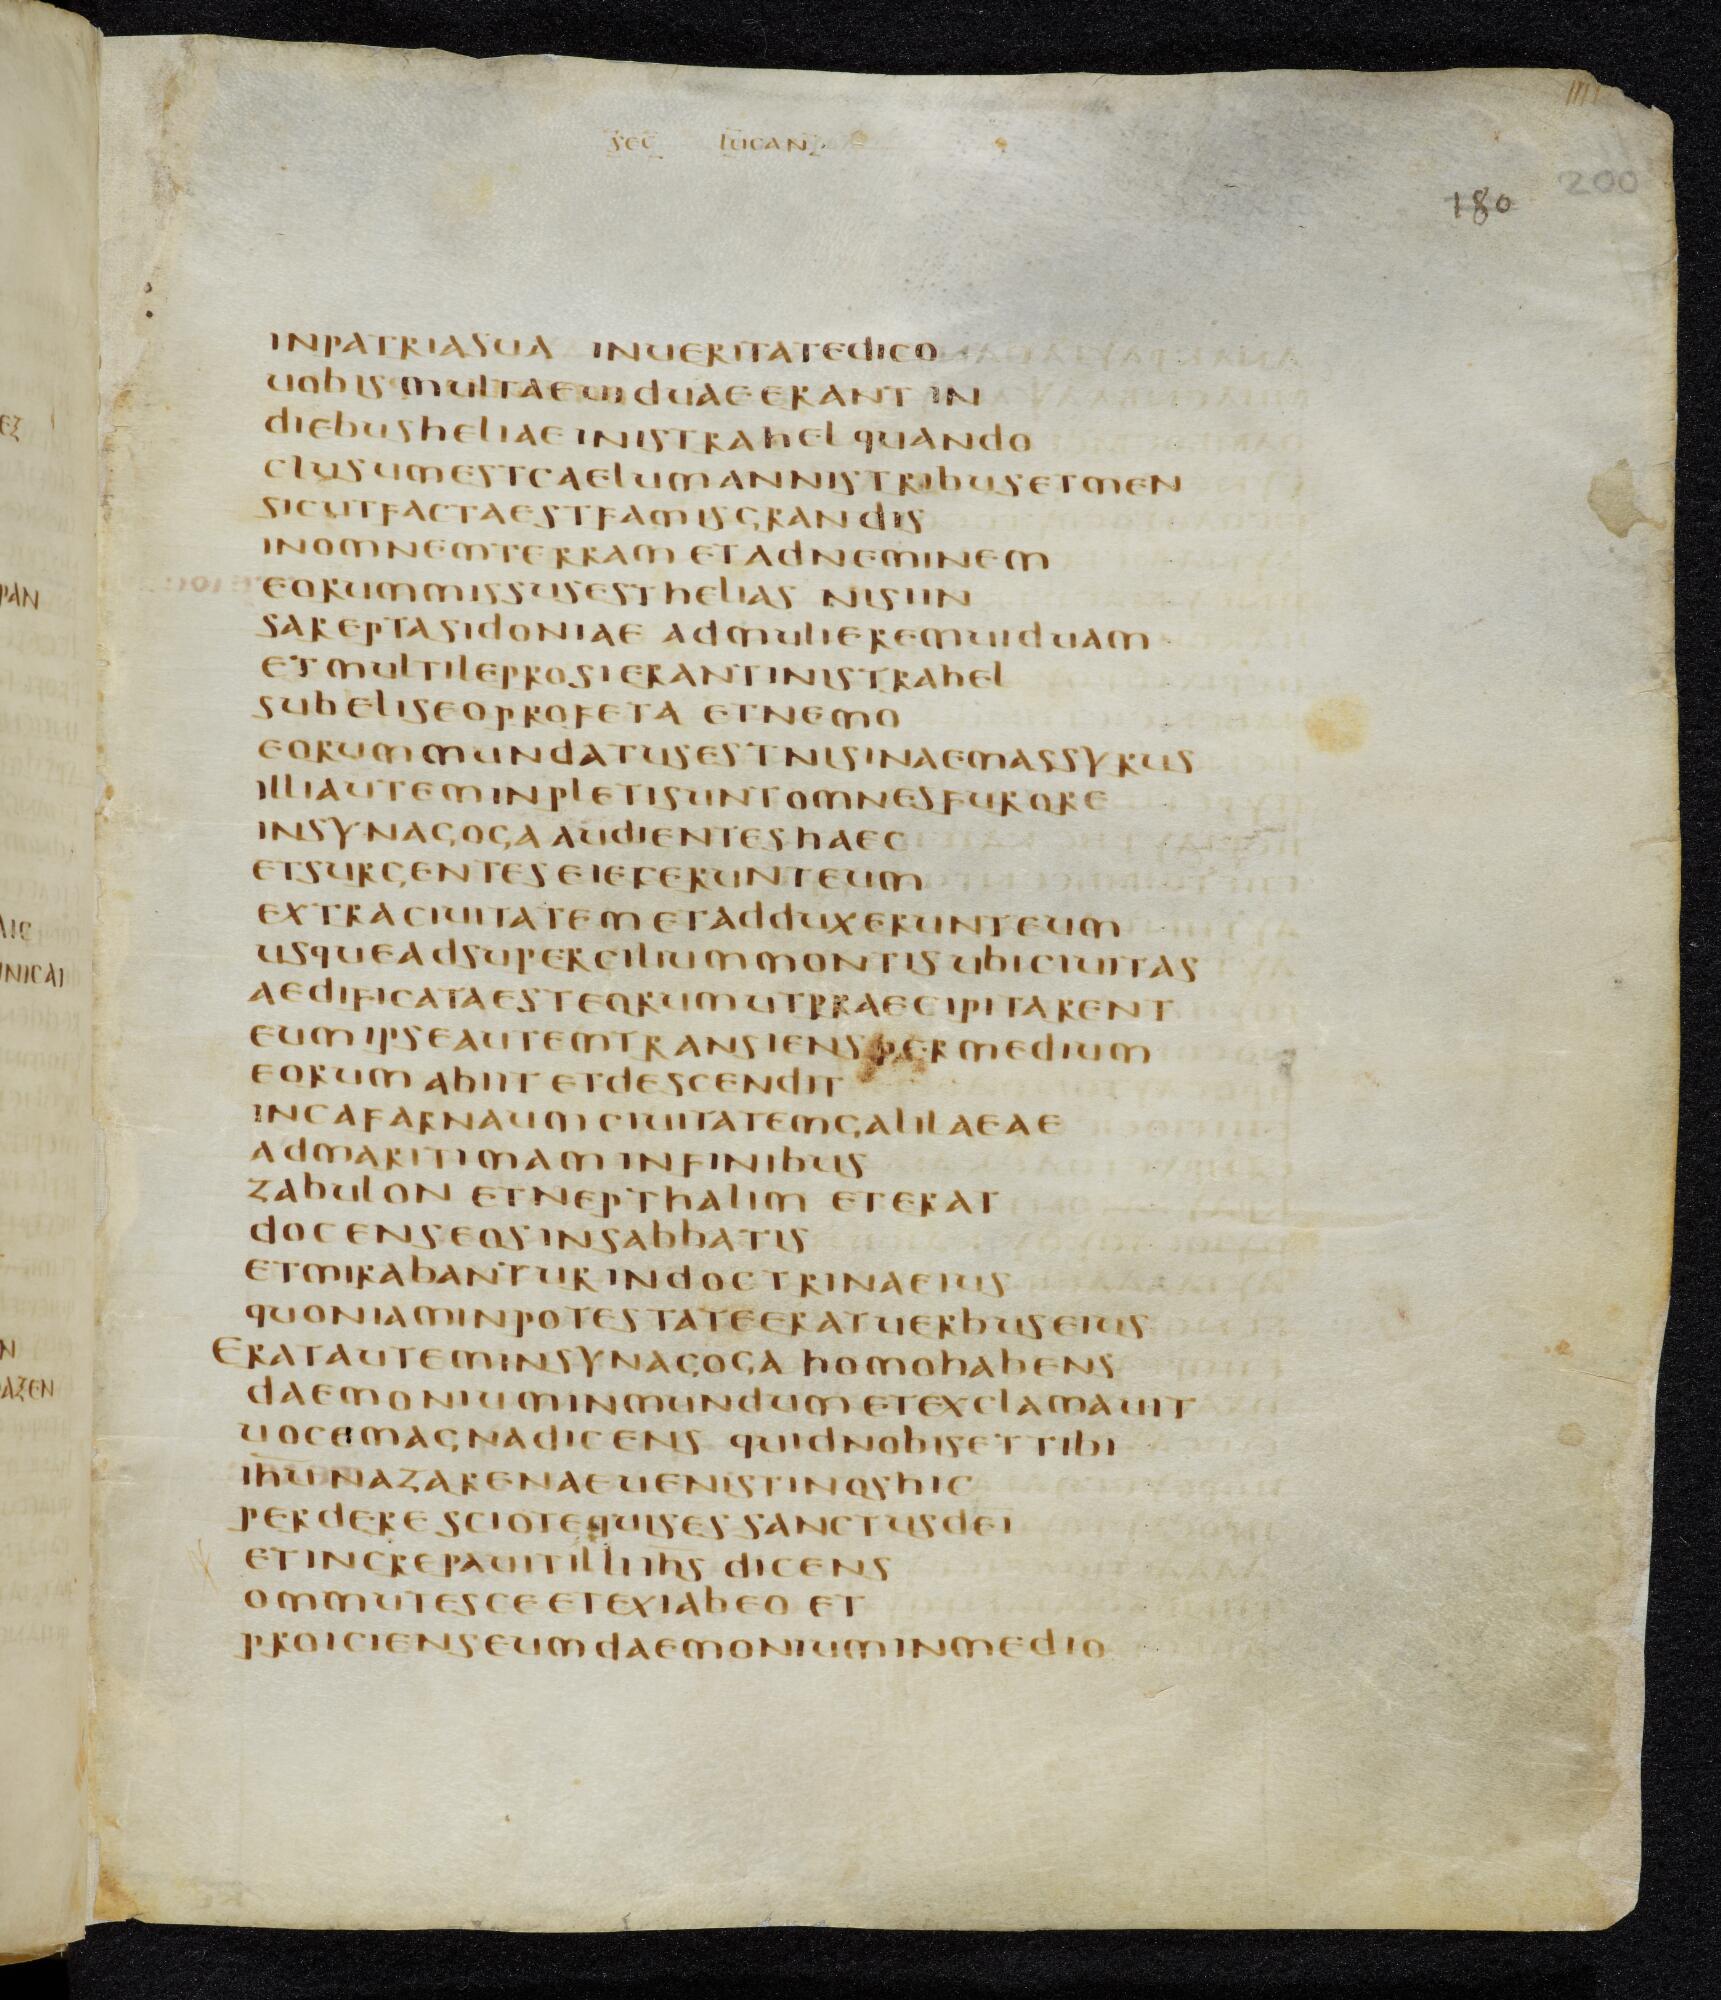 sec lucan
180
200
in patria sua in ueritate dico
uobis multae uiduae erant in
diebus heliae in istrahel quando
clusum est caelum annis tribus et men
sic ut facta est famis grandis
in omnem terram et ad neminem
eorum missus est helias nisi in
sarepta sidoniae ad mulierem uiduam
et multi leprosi erant in istrahel
sub eliseo profeta et nemo
eorum mundatus est nisi naemas syrus
illi autem inpleti sunt omnes furore
in synagoga audientes haec
et surgentes eiecerunt eum
extra ciuitatem et adduxerunt eum
usque ad supercilium montis ubi ciuitas
aedificata est eorum ut praecipitarent
eum ipse autem transiens per medium
eorum abiit et descendit
in cafarnaum ciuitatem galilaeae
ad maritimam in finibus
zabulon et nepthalim et erat
docens eos in sabbatis
et mirabantur in doctrina eius
quoniam in potestate erat uerbus eius
Erat autem in synagoga homo habens
daemonium inmundum et exclamauit
uoce magna dicens quid nobis et tibi
ihu nazarenae uenisti nos hic
perdere scio te qui ses sanctus dei
et increpauit illi ihs dicens
ommutesce et exi ab eo et
proiciens eum daemonium in medio